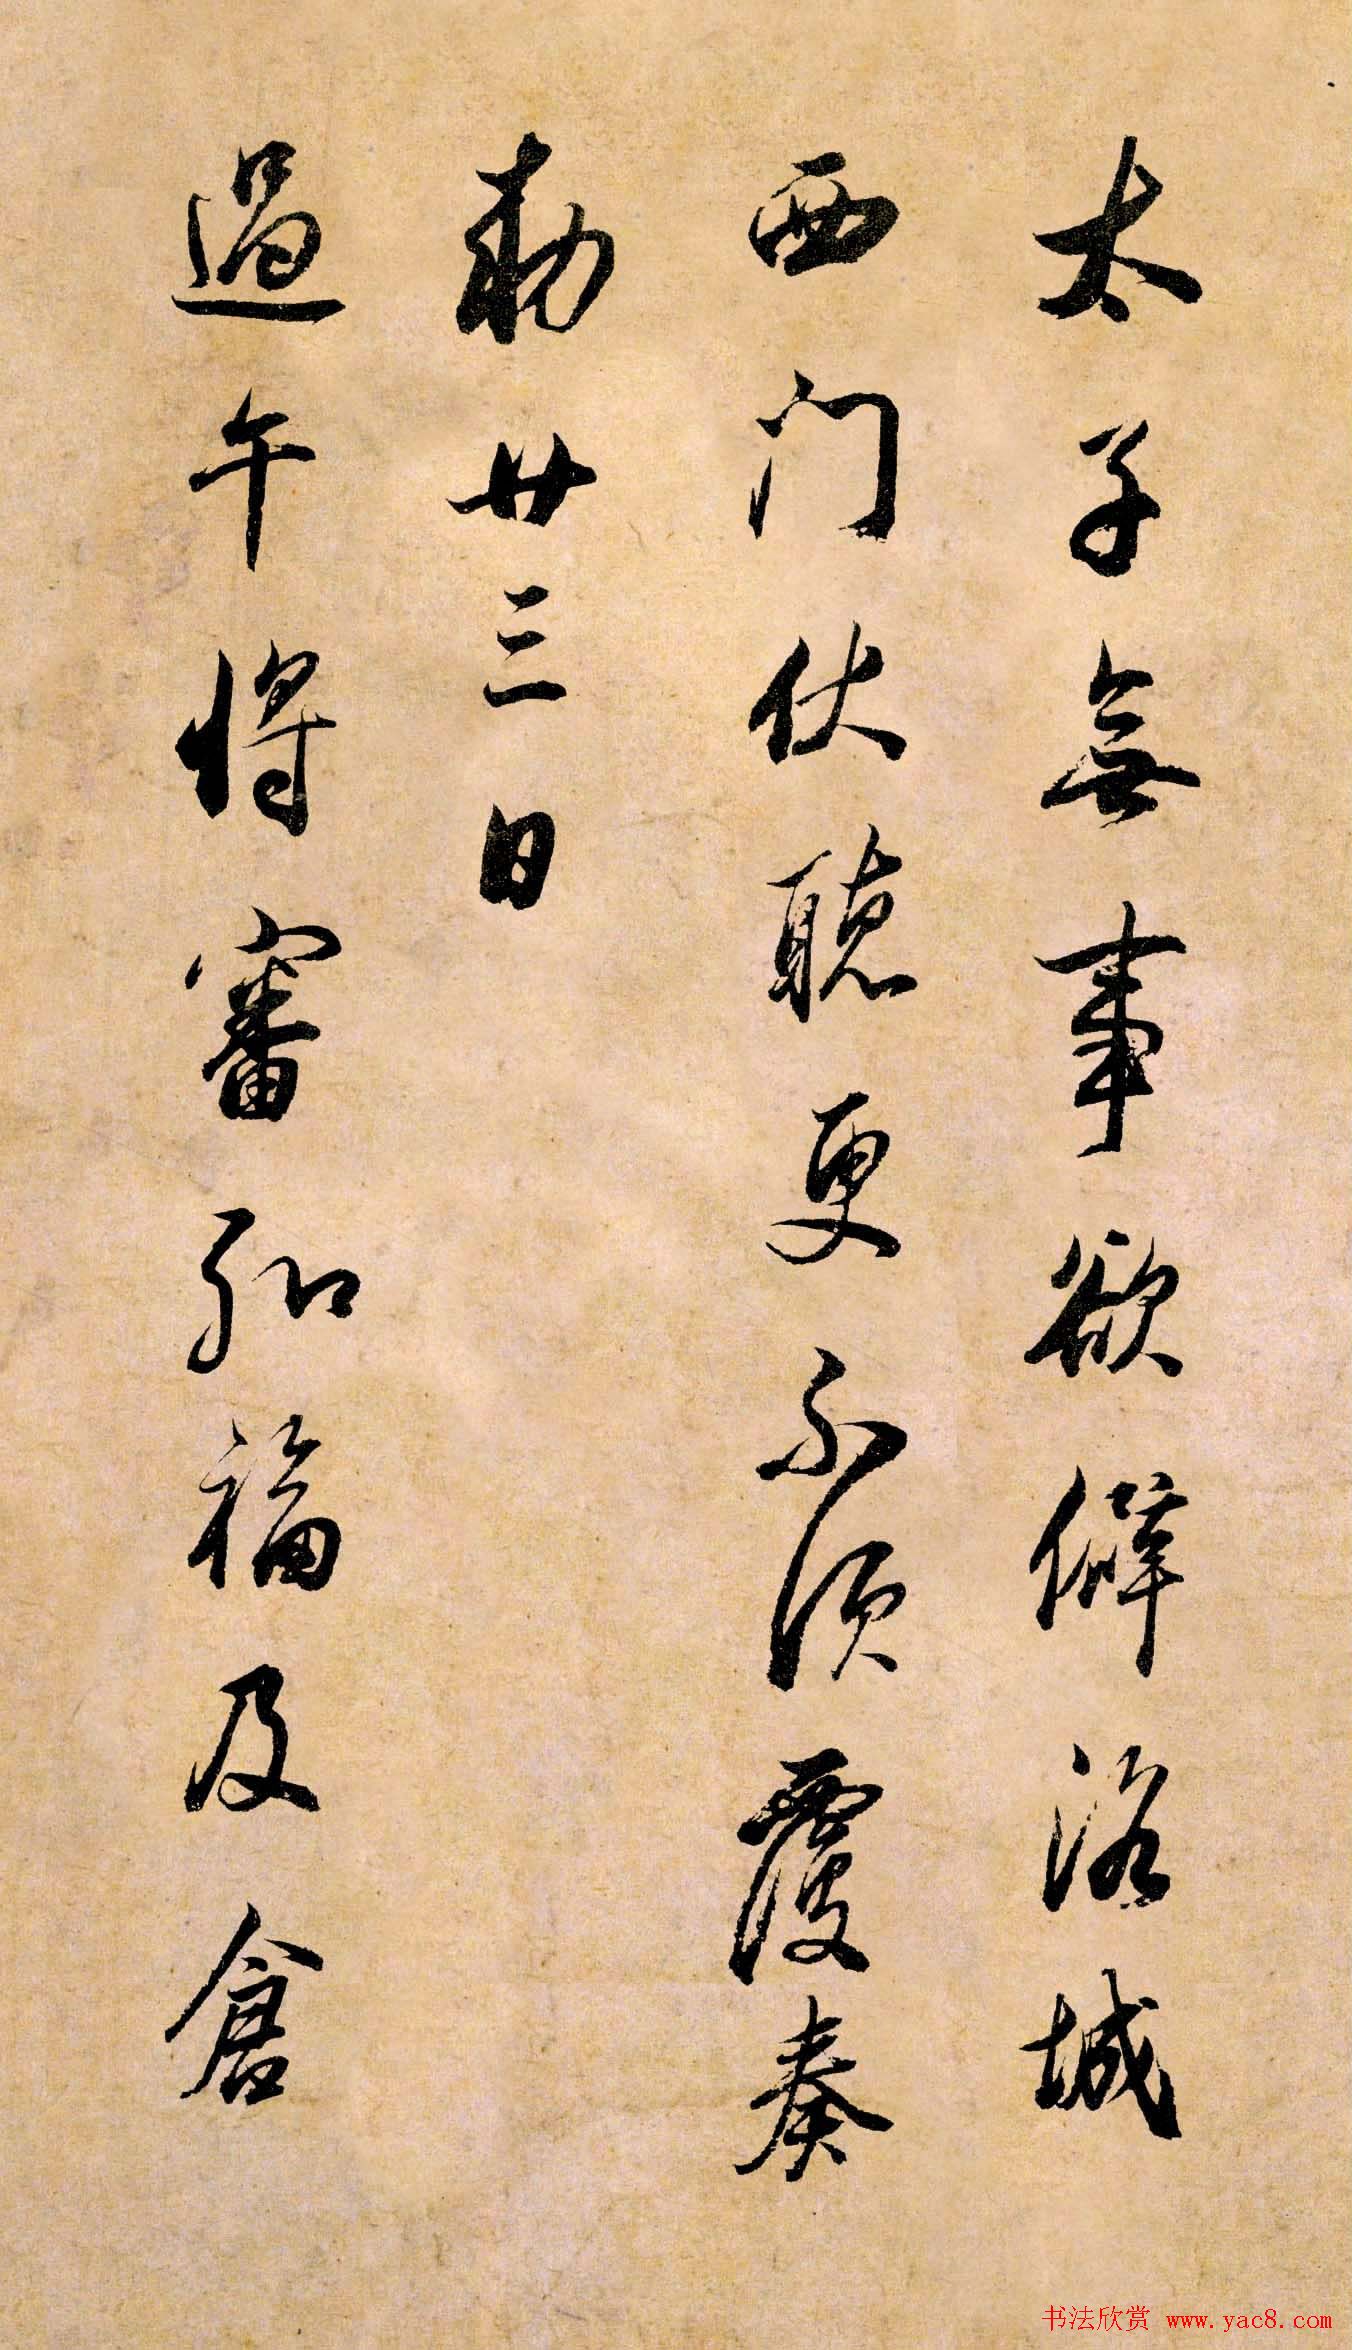 太子無事欲僻洛城
西门伏聴更不須覆奏
勅廿三日
過午将審弘福及倉
书法欣赏 www.yac8.com